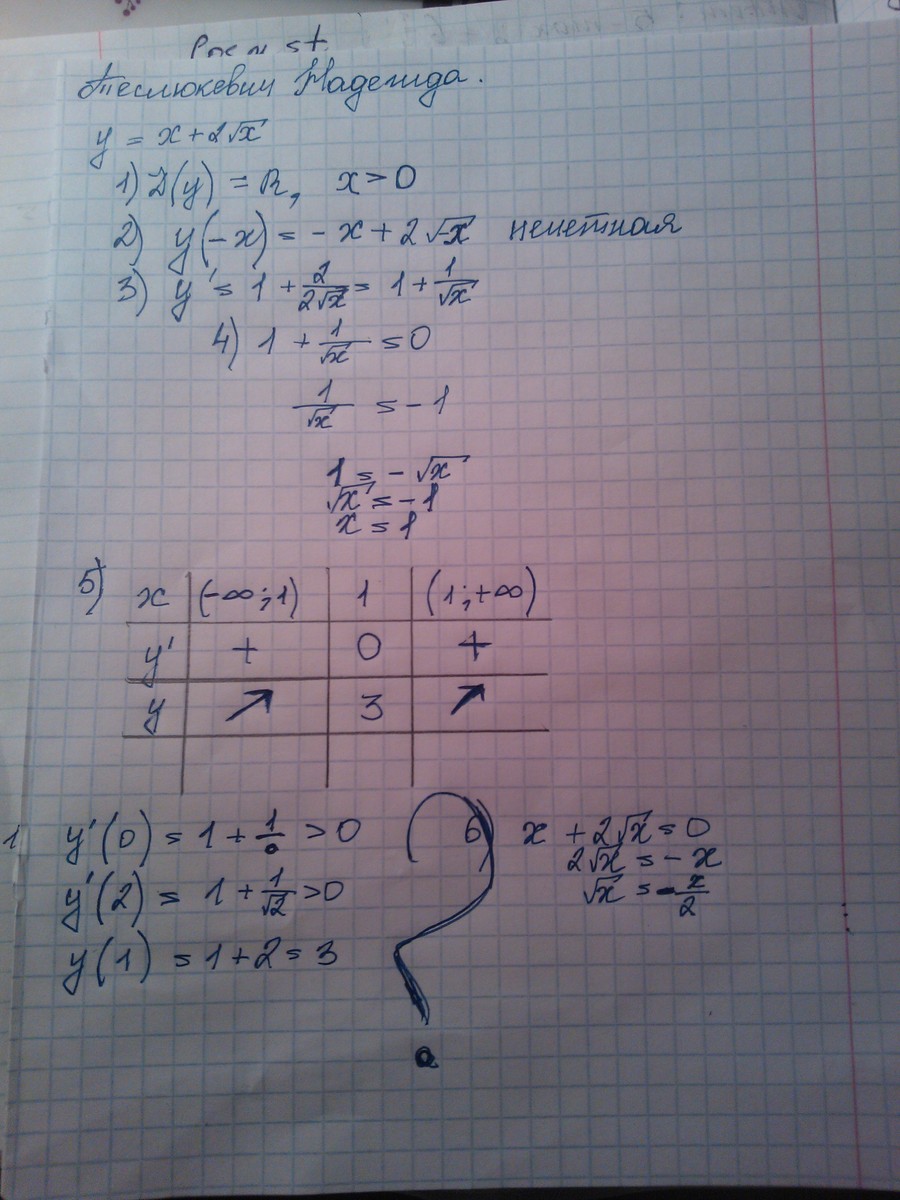 Теслюкевич Надежда.
y = x + 2√x
1) D(y) = R, x > 0
2) y(-x) = -x + 2√-x нечетная
3) y' = 1 + 2/(2√x) = 1 + 1/√x
4) 1 + 1/√x = 0
1/√x = -1
1 = -√x
√x = -1
x = 1
5)
x | (-∞;1) | 1 | (1;+∞)
y' | + | 0 | +
y | ↗ | 3 | ↗
y'(0) = 1 + 1/0 > 0
y'(2) = 1 + 1/√2 > 0
y(1) = 1 + 2 = 3
?
6) x + 2√x = 0
2√x = -x
√x = -x/2